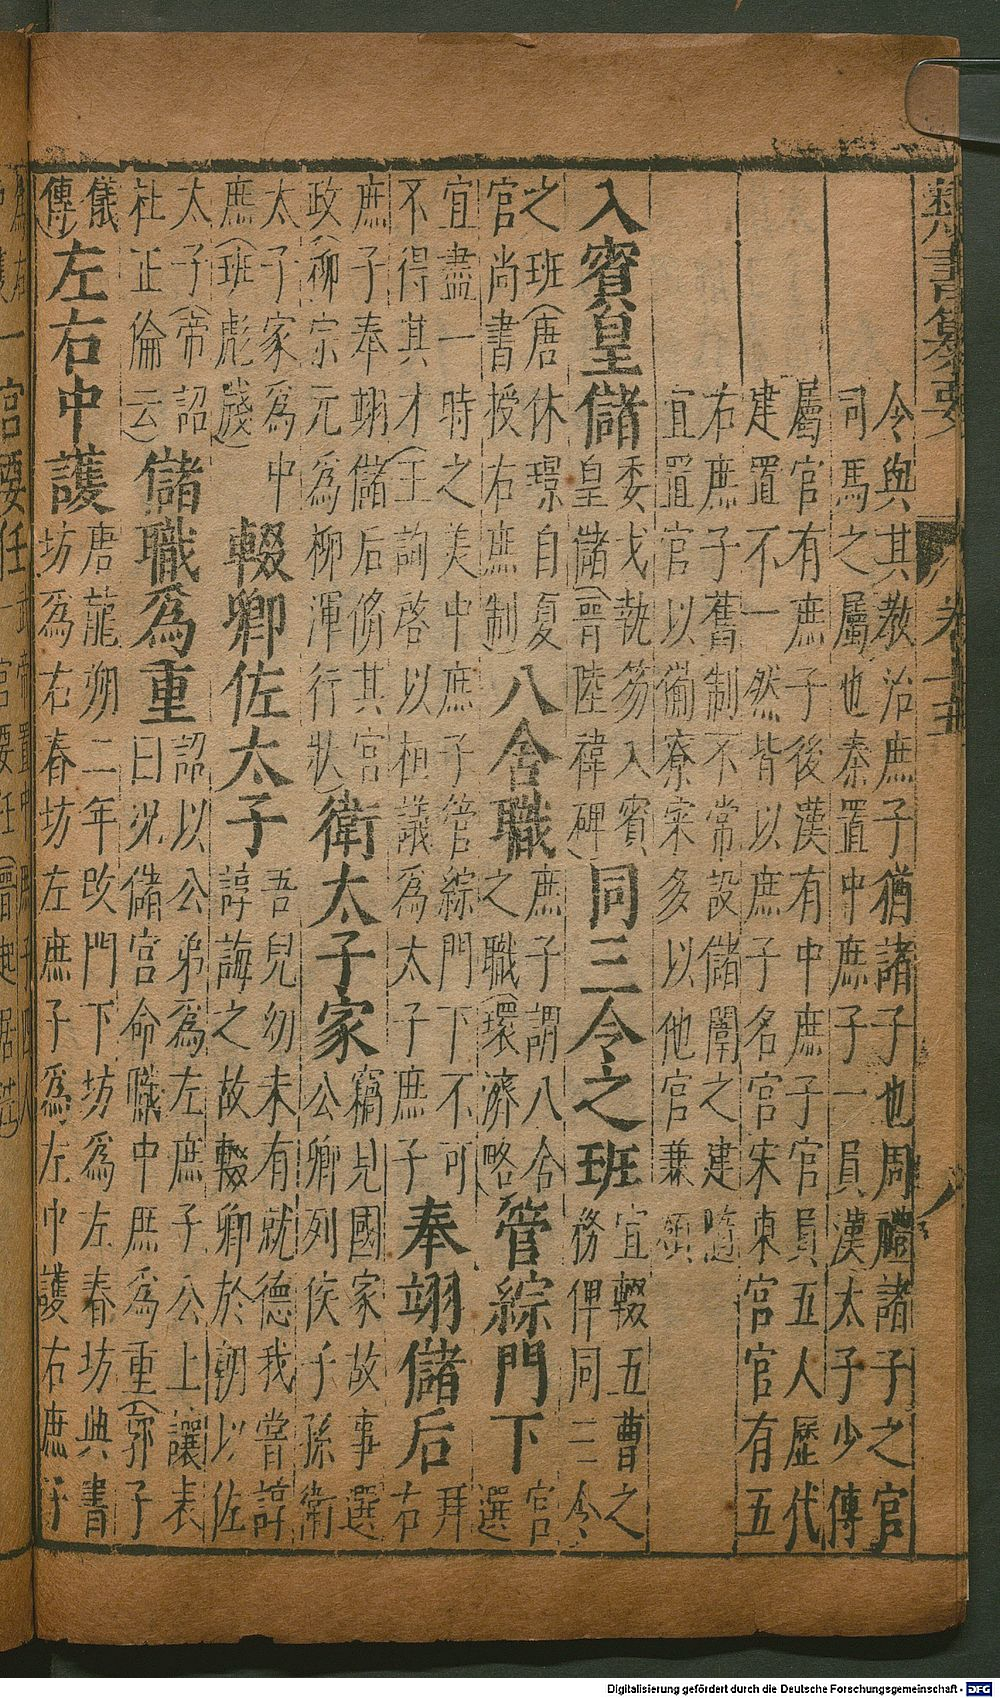 類書纂要 卷十五
令與其教治庶子猶諸子也周禮諸子之官
司馬之屬也秦置中庶子一員漢太子少傅
屬官有庶子後漢有中庶子官員五人歷代
建置不一然皆以庶子名官宋東宮官有五
右庶子舊制不常設儲闈之建隨
宜置官以備寮寀多以他官兼領
入賓皇儲 委戈執笏入賓皇儲(晉陸褘碑) 同三令之班 宜輟五曹之務俾同三令
之班(唐休璟自夏官尚書授右庶制) 八舍職 庶子謂八舍之職(環濟略) 管綜門下 宮選
宜盡一時之美中庶子管綜門下不可不得其才(王詢啓以桓議爲太子庶子 奉翊儲后 拜右
庶子奉翊儲后脩其官政(柳宗元爲柳渾行狀) 衛太子家 竊見國家故事選公卿列侯子孫衛
太子家爲中庶(班彪牋) 輟卿佐太子 吾兒幼未有就德我當諄諄誨之故輟卿於朝以佐
太子(帝詔杜正倫云) 儲職爲重 詔以公弟爲左庶子公上讓表曰况儲宮命職中庶爲重(郭子
儀傳) 左右中護 唐龍朔二年改門下坊爲左春坊典書坊爲右春坊左庶子爲左中護右庶子
Digitalisierung gefördert durch die Deutsche Forschungsgemeinschaft - DFG